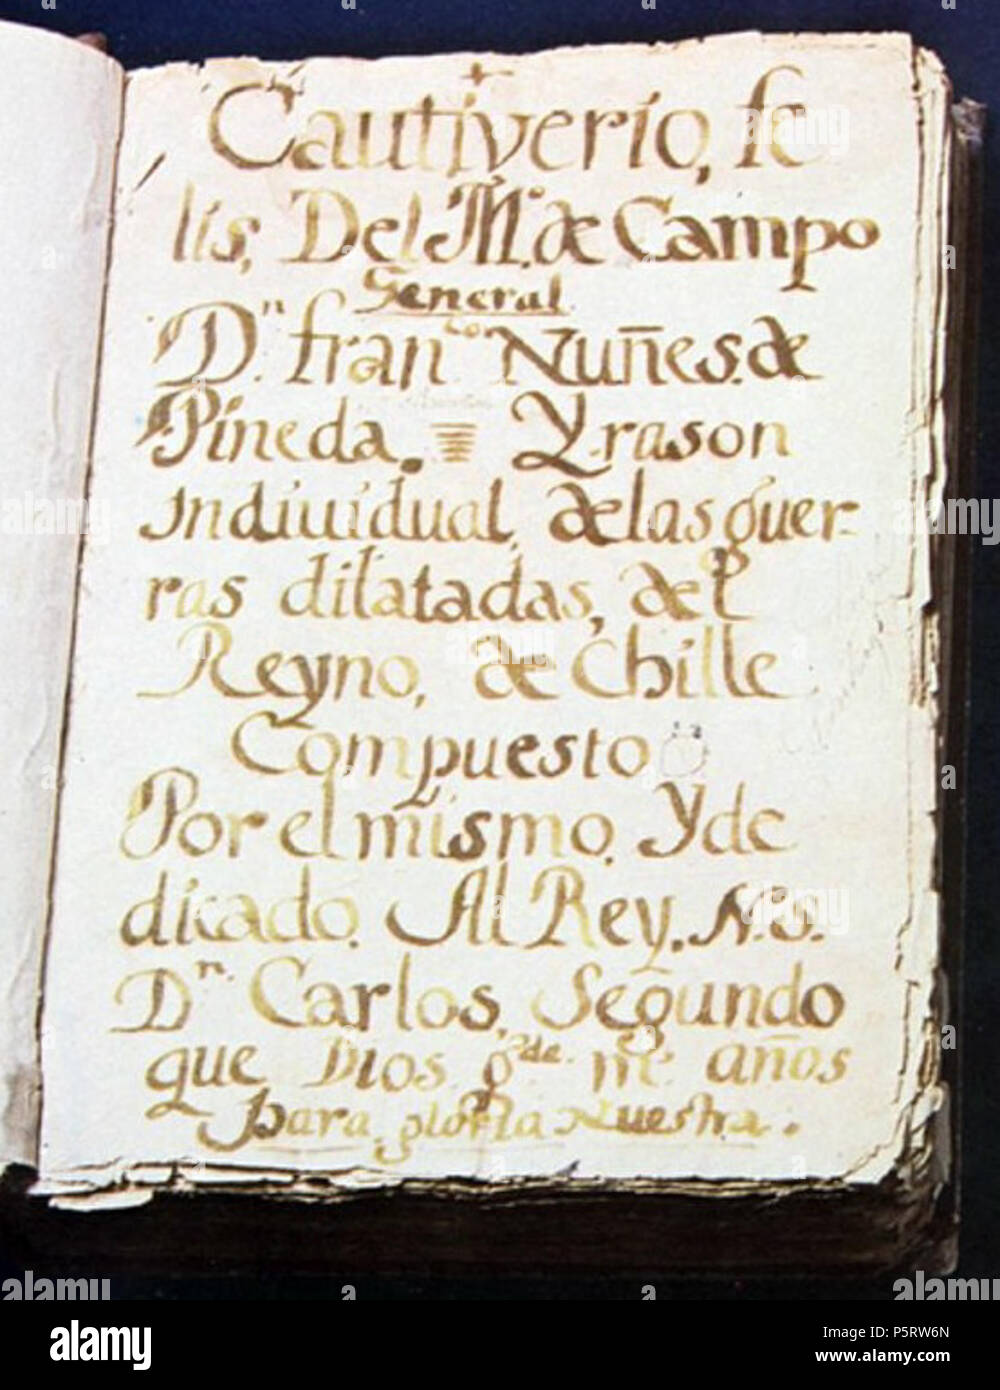 Cautiverio, fe
lis, Del M.º de Campo
General
D.n fran.co Nuñes. de
Pineda. Y rason
indiuidual, de las guer-
ras dilatadas, del
Reyno, de Chille
Compuesto
Por el mismo, Y de
dicado. Al Rey. N. S.
D.n Carlos. Segundo
que Dios g.de m.s años
para gloria Nuestra.
alamy
P5RW6N
www.alamy.com